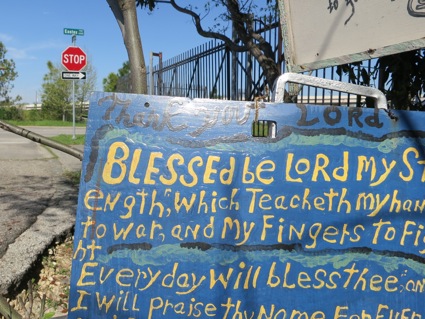 STOP
ONE WAY
Thank You LORD
BLESSED be LORD My St
ength, which Teacheth my han
to war, and my Fingers to Fig
ht
Everyday will I blessthee; an
I will praise thy Name For Ever